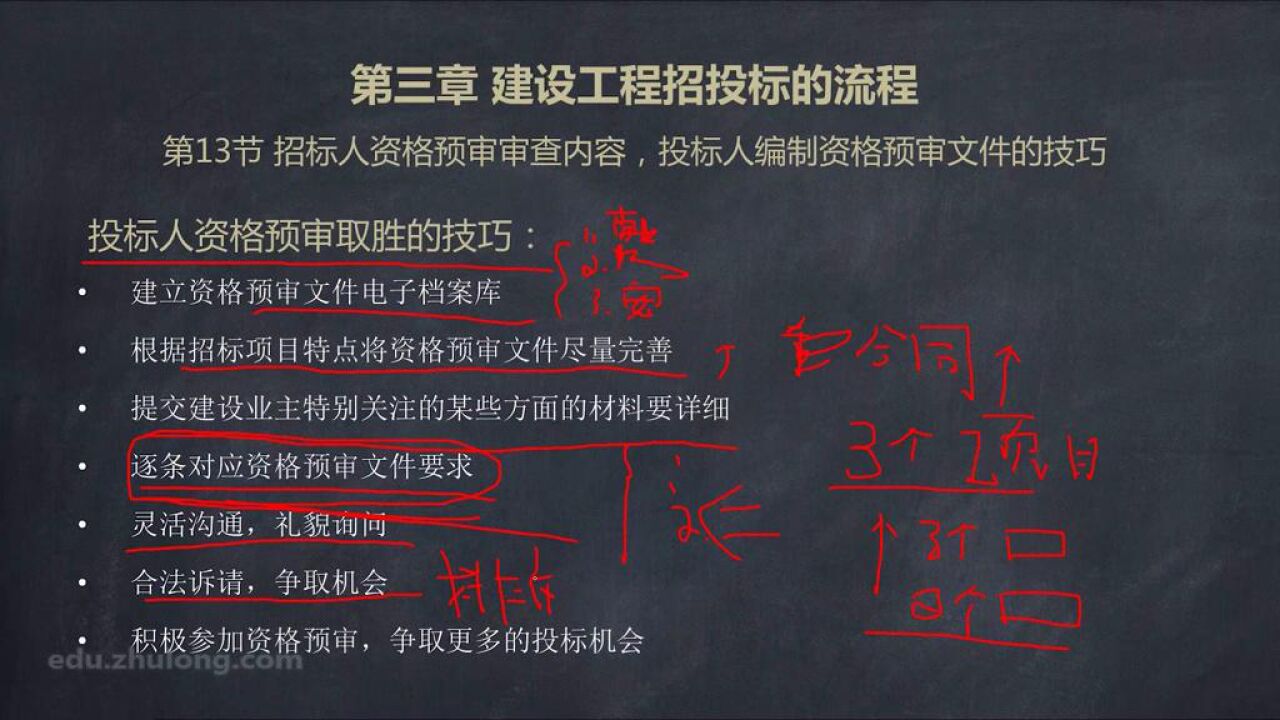 第三章 建设工程招投标的流程
第13节 招标人资格预审审查内容，投标人编制资格预审文件的技巧
投标人资格预审取胜的技巧：
• 建立资格预审文件电子档案库
• 根据招标项目特点将资格预审文件尽量完善
合同
• 提交建设业主特别关注的某些方面的材料要详细
3个
• 逐条对应资格预审文件要求
• 灵活沟通，礼貌询问
3个
• 合法诉请，争取机会
8个
• 积极参加资格预审，争取更多的投标机会
edu.zhulong.com